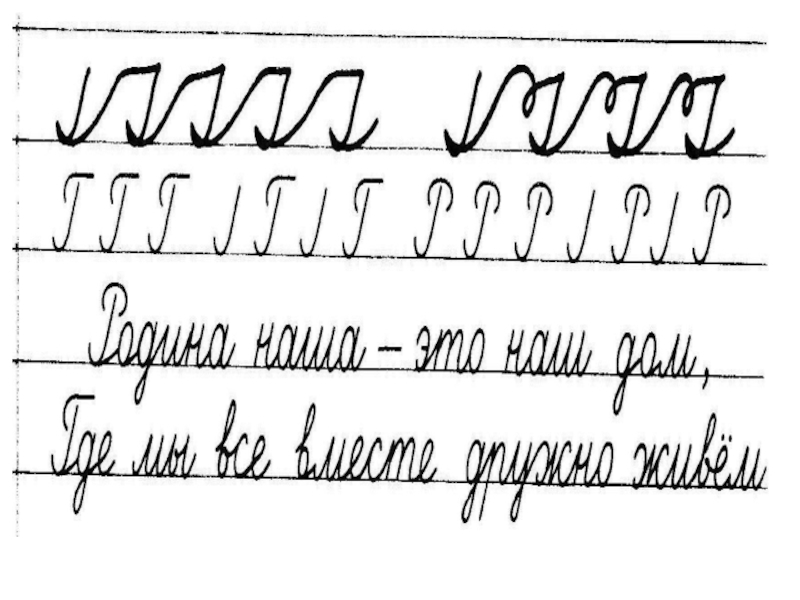 Г Г Г Г Г Р Р Р Р Р
Родина наша – это наш дом,
Где мы все вместе дружно живём